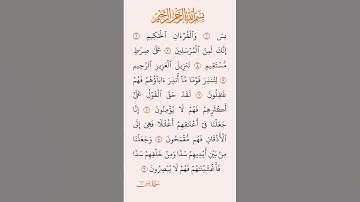 بِسْمِ اللَّهِ الرَّحْمَٰنِ الرَّحِيمِ
يسٓ ١ وَالْقُرْءَانِ الْحَكِيمِ ٢
إِنَّكَ لَمِنَ الْمُرْسَلِينَ ٣ عَلَىٰ صِرَٰطٍ
مُّسْتَقِيمٍ ٤ تَنزِيلَ الْعَزِيزِ الرَّحِيمِ ٥
لِتُنذِرَ قَوْمًا مَّآ أُنذِرَ ءَابَآؤُهُمْ فَهُمْ
غَٰفِلُونَ ٦ لَقَدْ حَقَّ الْقَوْلُ عَلَىٰٓ
أَكْثَرِهِمْ فَهُمْ لَا يُؤْمِنُونَ ٧ إِنَّا
جَعَلْنَا فِىٓ أَعْنَٰقِهِمْ أَغْلَٰلًا فَهِىَ إِلَى
الْأَذْقَانِ فَهُم مُّقْمَحُونَ ٨ وَجَعَلْنَا
مِنۢ بَيْنِ أَيْدِيهِمْ سَدًّا وَمِنْ خَلْفِهِمْ سَدًّا
فَأَغْشَيْنَٰهُمْ فَهُمْ لَا يُبْصِرُونَ ٩